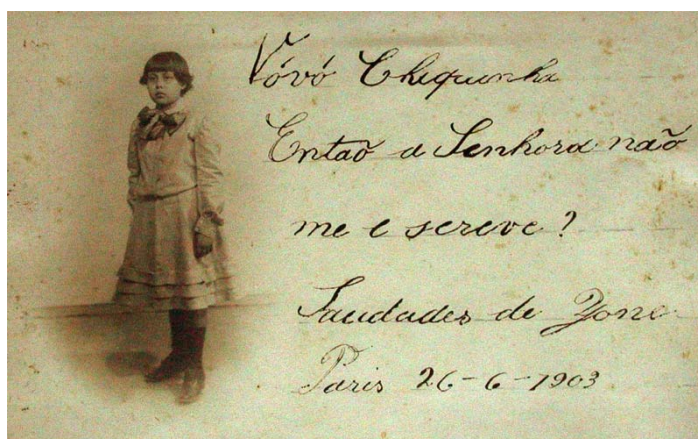 Vóvó Chiquinha
Entaõ a Senhora naõ
me escreve?
Saudades de Yone
Paris 26-6-1903